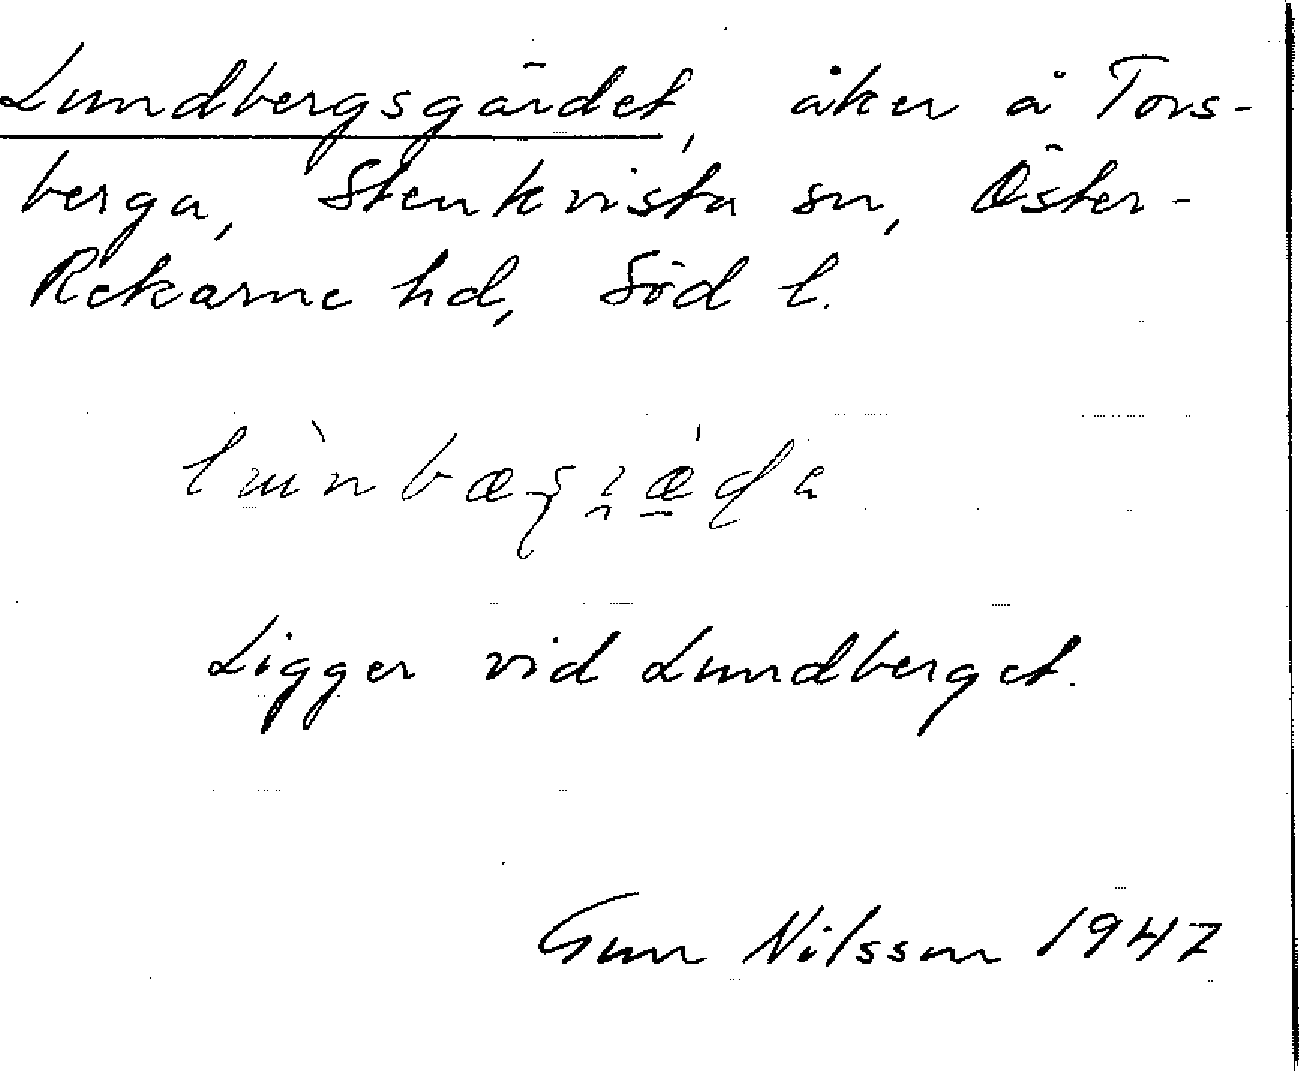 Lundbergsgärdet, åker å Tors-
berga, Stenkvista sn, Öster-
Rekarne hd, Söd l.
Ligger vid Lundberget.
Gun Nilsson 1947